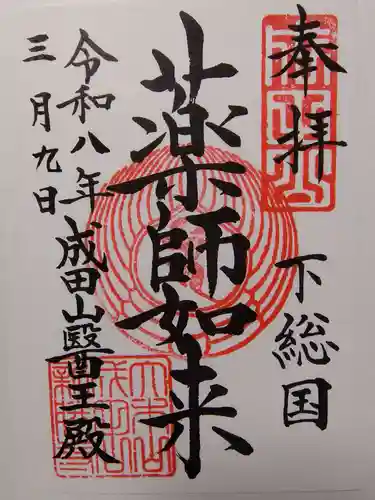 奉拝
下総国
薬師如来
令和八年
三月九日
成田山醫王殿